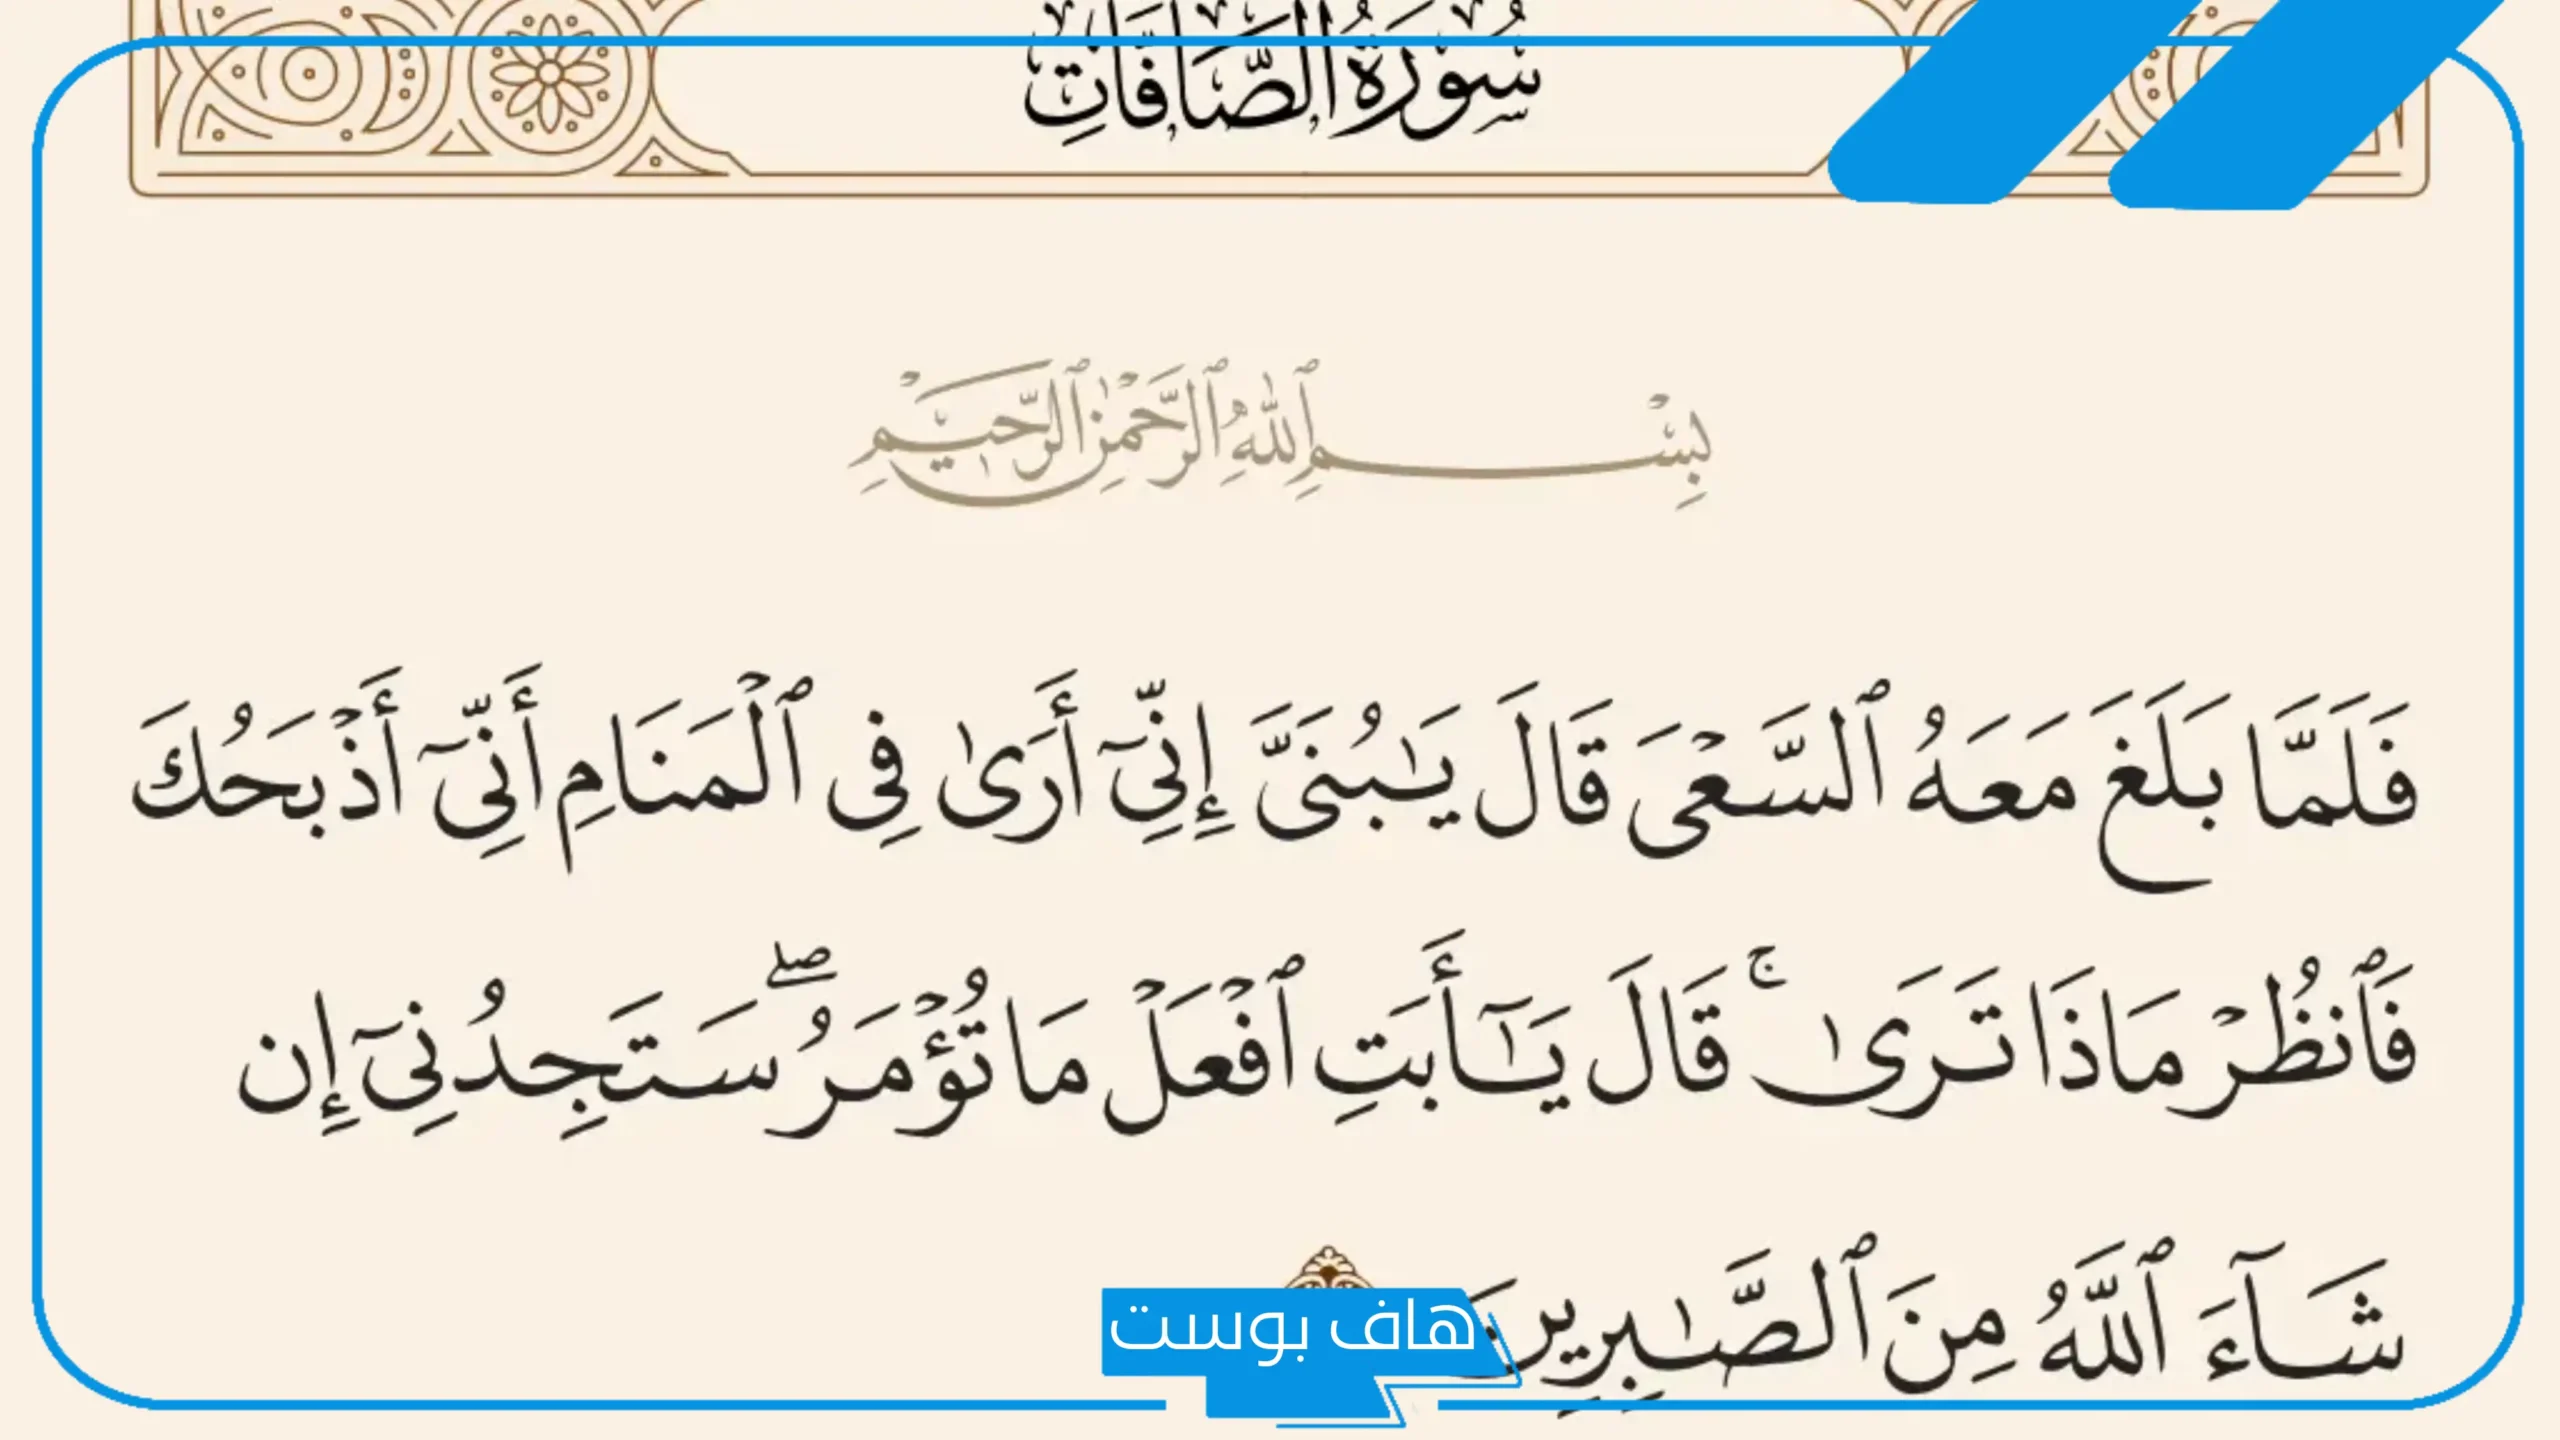 سُورَةُ الصَّافَّاتِ
بِسْمِ ٱللَّهِ ٱلرَّحْمَٰنِ ٱلرَّحِيمِ
فَلَمَّا بَلَغَ مَعَهُ ٱلسَّعْىَ قَالَ يَٰبُنَىَّ إِنِّىٓ أَرَىٰ فِى ٱلْمَنَامِ أَنِّىٓ أَذْبَحُكَ
فَٱنظُرْ مَاذَا تَرَىٰ ۚ قَالَ يَٰٓأَبَتِ ٱفْعَلْ مَا تُؤْمَرُ ۖ سَتَجِدُنِىٓ إِن
شَآءَ ٱللَّهُ مِنَ ٱلصَّٰبِرِينَ
هاف بوست